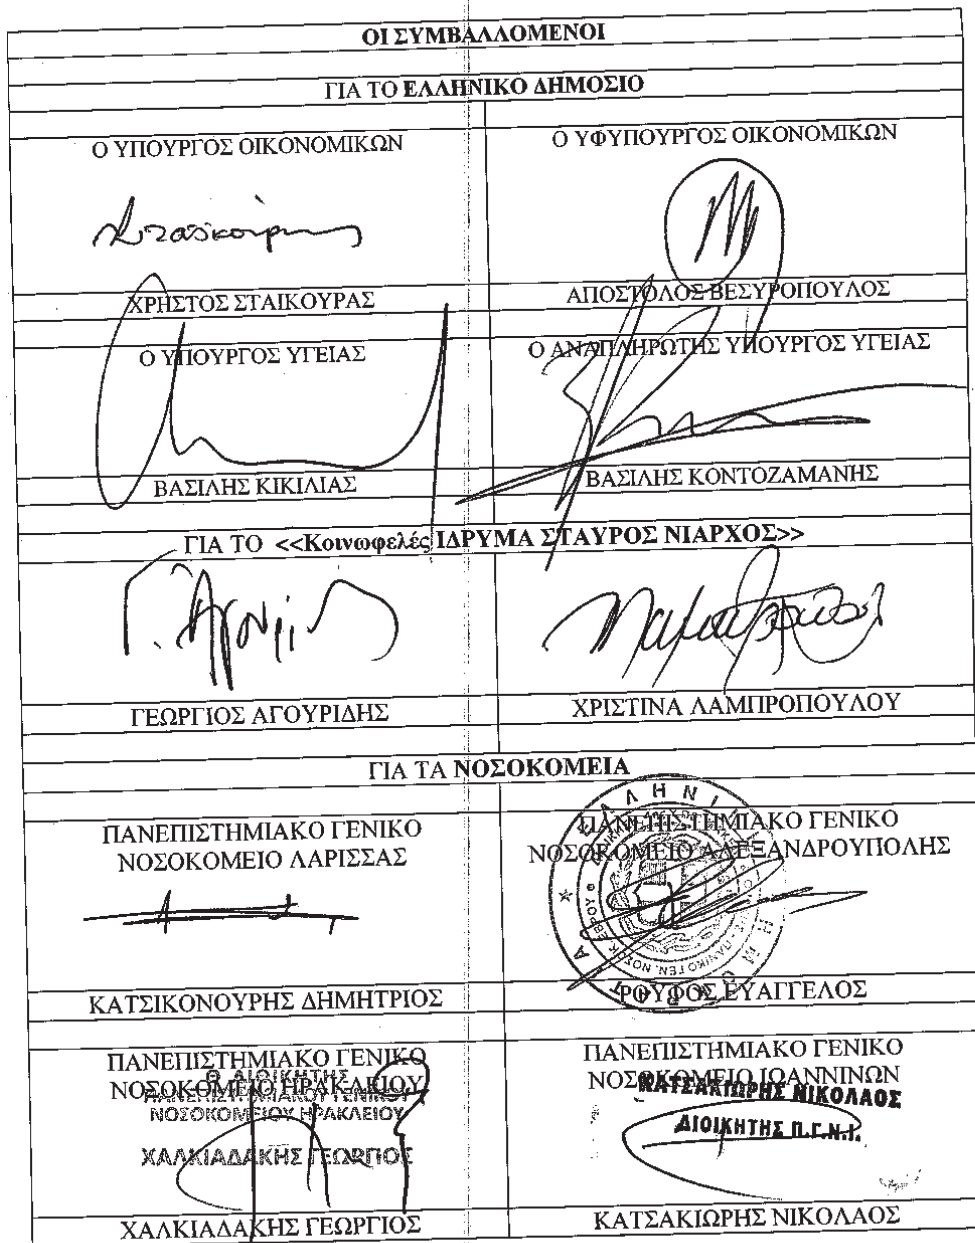 ΟΙ ΣΥΜΒΑΛΛΟΜΕΝΟΙ
ΓΙΑ ΤΟ ΕΛΛΗΝΙΚΟ ΔΗΜΟΣΙΟ
Ο ΥΠΟΥΡΓΟΣ ΟΙΚΟΝΟΜΙΚΩΝ
Ο ΥΦΥΠΟΥΡΓΟΣ ΟΙΚΟΝΟΜΙΚΩΝ
ΧΡΗΣΤΟΣ ΣΤΑΙΚΟΥΡΑΣ
ΑΠΟΣΤΟΛΟΣ ΒΕΣΥΡΟΠΟΥΛΟΣ
Ο ΥΠΟΥΡΓΟΣ ΥΓΕΙΑΣ
Ο ΑΝΑΠΛΗΡΩΤΗΣ ΥΠΟΥΡΓΟΣ ΥΓΕΙΑΣ
ΒΑΣΙΛΗΣ ΚΙΚΙΛΙΑΣ
ΒΑΣΙΛΗΣ ΚΟΝΤΟΖΑΜΑΝΗΣ
ΓΙΑ ΤΟ <<Κοινωφελές ΙΔΡΥΜΑ ΣΤΑΥΡΟΣ ΝΙΑΡΧΟΣ>>
ΓΕΩΡΓΙΟΣ ΑΓΟΥΡΙΔΗΣ
ΧΡΙΣΤΙΝΑ ΛΑΜΠΡΟΠΟΥΛΟΥ
ΓΙΑ ΤΑ ΝΟΣΟΚΟΜΕΙΑ
ΠΑΝΕΠΙΣΤΗΜΙΑΚΟ ΓΕΝΙΚΟ
ΝΟΣΟΚΟΜΕΙΟ ΛΑΡΙΣΣΑΣ
ΠΑΝΕΠΙΣΤΗΜΙΑΚΟ ΓΕΝΙΚΟ
ΝΟΣΟΚΟΜΕΙΟ ΑΛΕΞΑΝΔΡΟΥΠΟΛΗΣ
ΚΑΤΣΙΚΟΝΟΥΡΗΣ ΔΗΜΗΤΡΙΟΣ
ΡΟΥΦΟΣ ΕΥΑΓΓΕΛΟΣ
ΠΑΝΕΠΙΣΤΗΜΙΑΚΟ ΓΕΝΙΚΟ
ΝΟΣΟΚΟΜΕΙΟ ΗΡΑΚΛΕΙΟΥ
Ο ΔΙΟΙΚΗΤΗΣ
ΠΑΝΕΠΙΣΤΗΜΙΑΚΟΥ ΓΕΝΙΚΟΥ
ΝΟΣΟΚΟΜΕΙΟΥ ΗΡΑΚΛΕΙΟΥ
ΧΑΛΚΙΑΔΑΚΗΣ ΓΕΩΡΓΙΟΣ
ΠΑΝΕΠΙΣΤΗΜΙΑΚΟ ΓΕΝΙΚΟ
ΝΟΣΟΚΟΜΕΙΟ ΙΩΑΝΝΙΝΩΝ
ΚΑΤΣΑΚΙΩΡΗΣ ΝΙΚΟΛΑΟΣ
ΔΙΟΙΚΗΤΗΣ Π.Γ.Ν.Ι.
ΧΑΛΚΙΑΔΑΚΗΣ ΓΕΩΡΓΙΟΣ
ΚΑΤΣΑΚΙΩΡΗΣ ΝΙΚΟΛΑΟΣ